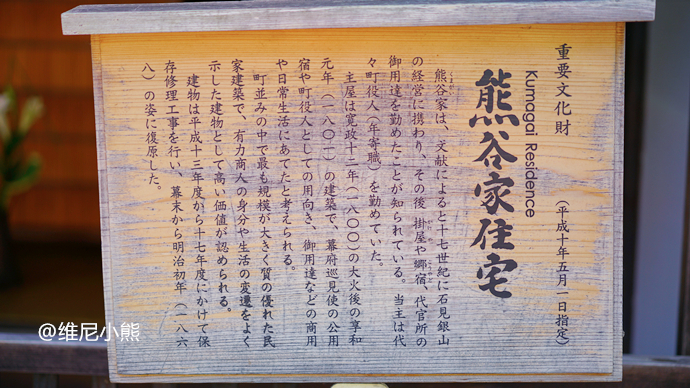 重要文化財
(平成十年五月一日指定)
Kumagai Residence
熊谷家住宅
熊谷家は、文献によると十七世紀に石見銀山
の経営に携わり、その後 掛屋や郷宿、代官所の
御用達を勤めたことが知られている。当主は代
々町役人(年寄職)を勤めていた。
主屋は寛政十二年(一八〇〇)の大火後の享和
元年(一八〇一)の建築で、幕府巡見使の公用
宿や町役人としての用向き、御用達などの商用
や日常生活にあてたと考えられる。
町並みの中で最も規模が大きく質の優れた民
家建築で、有力商人の身分や生活の変遷をよく
示した建物として高い価値が認められる。
建物は平成十三年度から十七年度にかけて保
存修理工事を行い、幕末から明治初年(一八六
八)の姿に復原した。
@维尼小熊